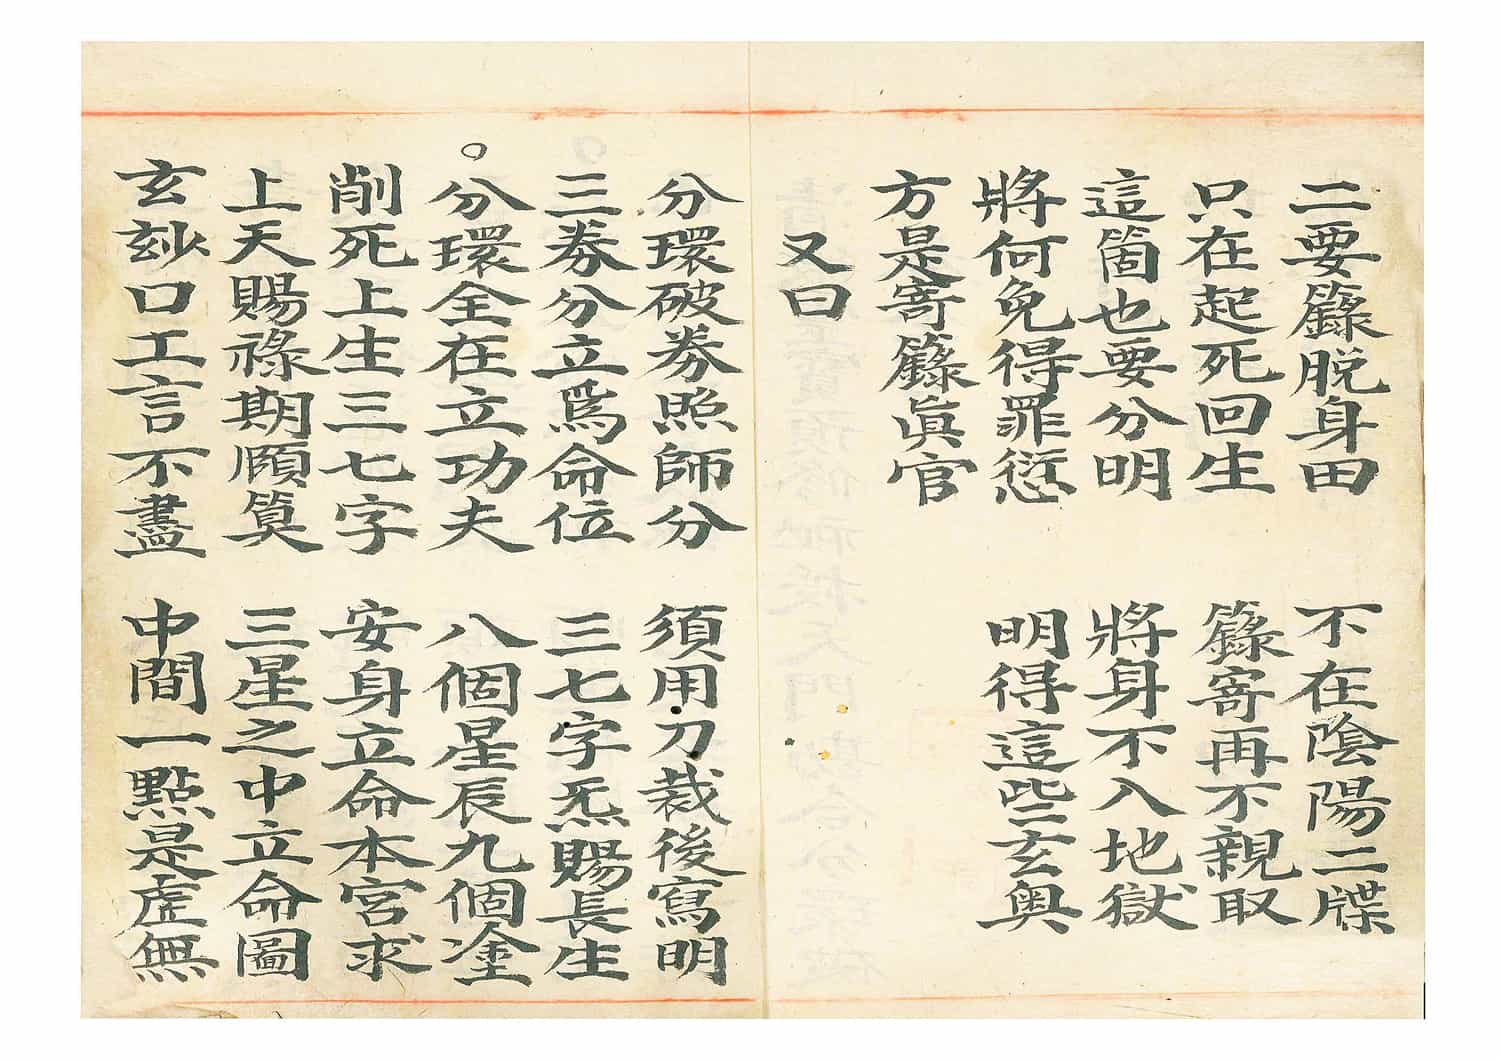 二要籙脱身田　不在陰陽二牒
只在起死回生　籙寄再不親取
這箇也要分明　將身不入地獄
將何免得罪愆　明得這些玄奥
方是寄籙眞官
又曰
分環破券照師分　須用刀裁後寫明
三券分立爲命位　三七字炁賜長生
○分環全在立功夫　八個星辰九個塗
削死上生三七字　安身立命本宮求
上天賜祿期願算　三星之中立命圖
玄玅口工言不盡　中間一點是虛無